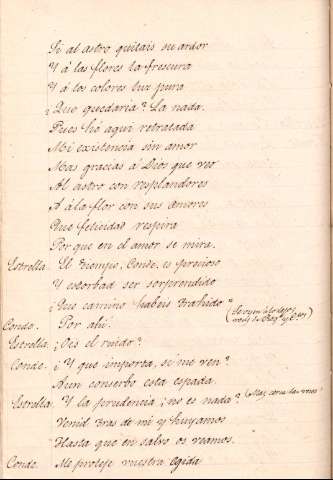 Si al astro quitais su ardor
Y á las flores la frescura
Y á los colores luz pura
¿Que quedaria? La nada.
Pues hé aqui retratada
Mi existencia sin amor
Mas gracias á Dios que veo
Al astro con resplandores
A á la flor con sus amores
Que felicidad respira
Por que en el amor se mira.
Estrella. El tiempo, Conde, es precioso
Y estorbad ser sorprendido
¿Que camino habeis trahido?
Conde. Por ahí.
Estrella. ¿Oís el ruido?
Conde. ¿Y que importa, si me ven?
Aun conservo esta espada.
Estrella. Y la prudencia ¿no es nada? (Mas cerca las voces)
Venid tras de mi y huyamos
Hasta que en salvo os veamos.
Conde. Me proteje vuestra egida